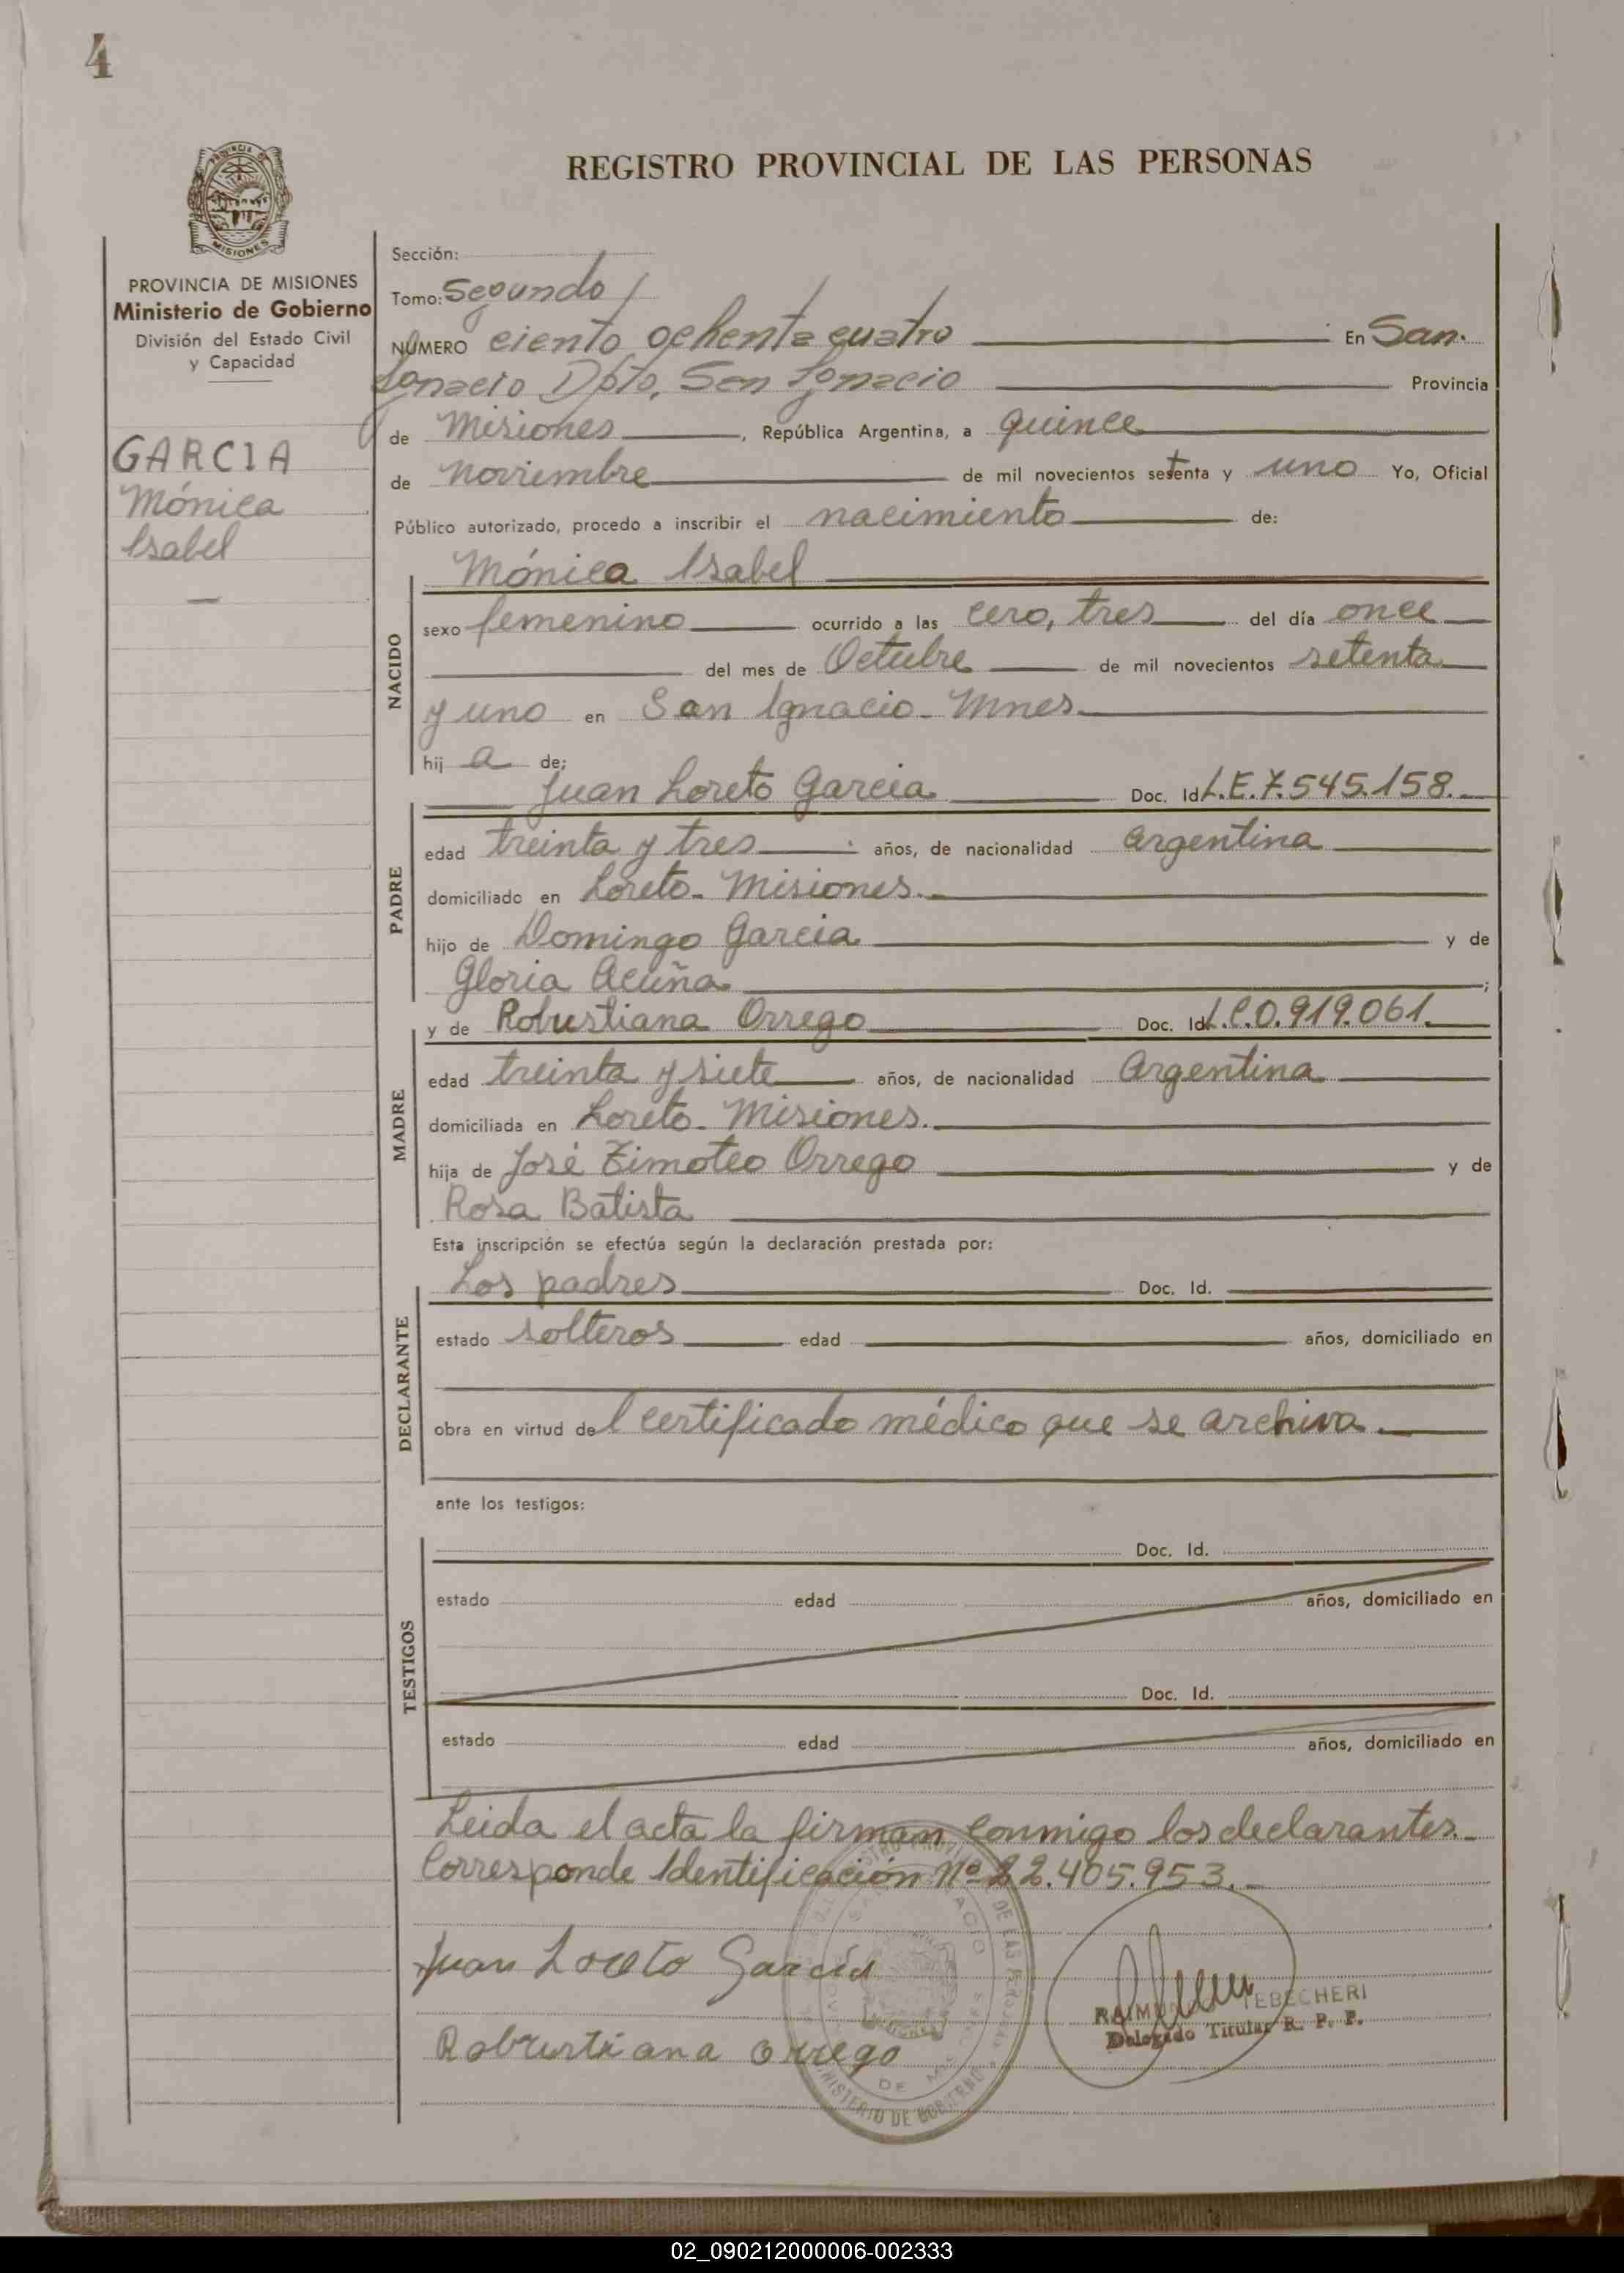 4
REGISTRO PROVINCIAL DE LAS PERSONAS
MISIONES
PROVINCIA DE MISIONES
Ministerio de Gobierno
División del Estado Civil
y Capacidad
GARCIA
Mónica
Isabel
Sección:
Tomo: Segundo
NÚMERO ciento ochenta cuatro En San
Ignacio Dpto. San Ignacio Provincia
de Misiones, República Argentina, a quince
de noviembre de mil novecientos setenta y uno Yo, Oficial
Público autorizado, procedo a inscribir el nacimiento de:
NACIDO
Mónica Isabel
sexo femenino ocurrido a las cero, tres del día once
del mes de Octubre de mil novecientos setenta
y uno en San Ignacio - Mnes
hij a de:
PADRE
Juan Loreto Garcia Doc. Id. L.E.7.545.158.
edad treinta y tres años, de nacionalidad Argentina
domiciliado en Loreto - Misiones.
hijo de Domingo Garcia y de
Gloria Acuña ;
MADRE
y de Robustiana Orrego Doc. Id. L.C.0.919.061.
edad treinta y siete años, de nacionalidad Argentina
domiciliada en Loreto - Misiones.
hija de José Timoteo Orrego y de
Rosa Batista
Esta inscripción se efectúa según la declaración prestada por:
DECLARANTE
Los padres Doc. Id.
estado solteros edad años, domiciliado en
obra en virtud del certificado médico que se archiva
ante los testigos:
TESTIGOS
Doc. Id.
estado edad años, domiciliado en
Doc. Id.
estado edad años, domiciliado en
Leida el acta la firman conmigo los declarantes.
Corresponde Identificación Nº 22.405.953.
Juan Loreto García
Robustiana Orrego
TEBECHERI
Delegado Titular R. P. P.
MINISTERIO DE GOBIERNO
02_090212000006-002333